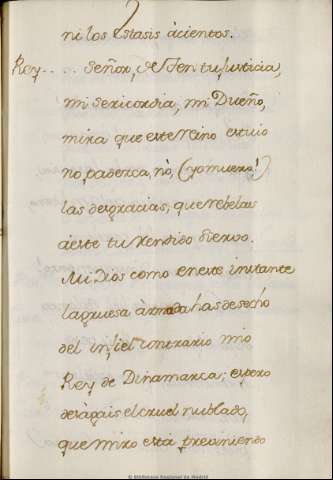 ni los Extasis àcientos.
Rey.... Señor, ~ ten tu Justicia,
misericordia, mi Dueño,
mira que este Reino es tuio
no, padezca, nò, (yo muero!)
las desgracias, que rebelas
à este tu rendido siervo.
Mi Dios como en este instante
la gruesa àrmada has desecho
del infiel contrario mio
Rey de Dinamarca; espero
desàgais el cruel nublado,
que miro està previniendo
© Biblioteca Regional de Madrid